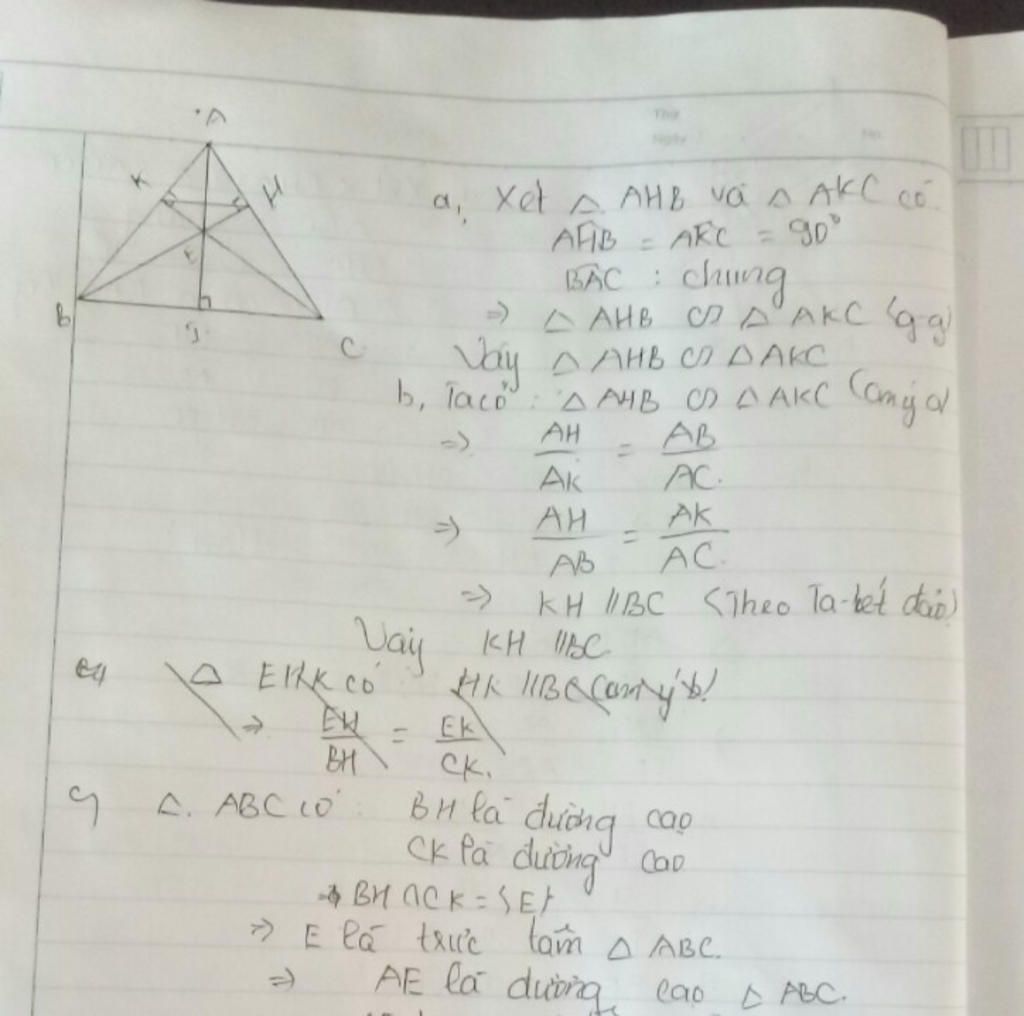 Thứ
Ngày No.
A
K H
E
B I C
a, Xét △ AHB và △ AKC có
AHB = AKC = 90°
BAC : chung
=> △ AHB ∽ △ AKC (g-g)
Vậy △ AHB ∽ △ AKC
b, Ta có : △ AHB ∽ △ AKC (cm ý a)
=> AH/AK = AB/AC.
=> AH/AB = AK/AC.
=> KH // BC (Theo Ta-lét đảo)
Vậy KH // BC
△ EHK có HK // BC (cm ý b)
=> EH/BH = EK/CK.
c, △. ABC có : BH là đường cao
CK là đường cao
BH ∩ CK = {E}
=> E là trực tâm △ ABC.
=> AE là đường cao △ ABC.